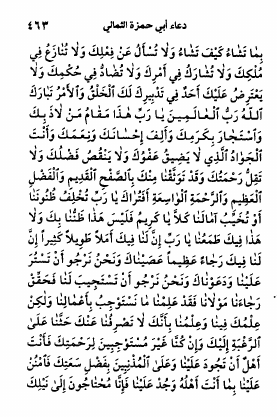 دعاء أبي حمزة الثمالي ٤٦٣
بِمَا تَشَاءُ كَيْفَ تَشَاءُ وَلَا تُسْأَلُ عَنْ فِعْلِكَ وَلَا تُنَازَعُ فِي
مُلْكِكَ وَلَا تُشَارَكُ فِي أَمْرِكَ وَلَا تُضَادُّ فِي حُكْمِكَ وَلَا
يَعْتَرِضُ عَلَيْكَ أَحَدٌ فِي تَدْبِيرِكَ لَكَ الْخَلْقُ وَالْأَمْرُ تَبَارَكَ
اللهُ رَبُّ الْعَالَمِينَ يَا رَبِّ هَذَا مَقَامُ مَنْ لَاذَ بِكَ
وَاسْتَجَارَ بِكَرَمِكَ وَأَلِفَ إِحْسَانَكَ وَنِعَمَكَ وَأَنْتَ
الْجَوَادُ الَّذِي لَا يَضِيقُ عَفْوُكَ وَلَا يَنْقُصُ فَضْلُكَ وَلَا
تَقِلُّ رَحْمَتُكَ وَقَدْ تَوَثَّقْنَا مِنْكَ بِالصَّفْحِ الْقَدِيمِ وَالْفَضْلِ
الْعَظِيمِ وَالرَّحْمَةِ الْوَاسِعَةِ أَفَتُرَاكَ يَا رَبِّ تُخْلِفُ ظُنُونَنَا
أَوْ تُخَيِّبُ آمَالَنَا كَلَّا يَا كَرِيمُ فَلَيْسَ هَذَا ظَنُّنَا بِكَ وَلَا
هَذَا فِيكَ طَمَعُنَا يَا رَبِّ إِنَّ لَنَا فِيكَ أَمَلًا طَوِيلًا كَثِيرًا إِنَّ
لَنَا فِيكَ رَجَاءً عَظِيمًا عَصَيْنَاكَ وَنَحْنُ نَرْجُو أَنْ تَسْتُرَ
عَلَيْنَا وَدَعَوْنَاكَ وَنَحْنُ نَرْجُو أَنْ تَسْتَجِيبَ لَنَا فَحَقِّقْ
رَجَاءَنَا مَوْلَانَا فَقَدْ عَلِمْنَا مَا نَسْتَوْجِبُ بِأَعْمَالِنَا وَلَكِنْ
عِلْمُكَ فِينَا وَعِلْمُنَا بِأَنَّكَ لَا تَصْرِفُنَا عَنْكَ حَثَّنَا عَلَى
الرَّغْبَةِ إِلَيْكَ وَإِنْ كُنَّا غَيْرَ مُسْتَوْجِبِينَ لِرَحْمَتِكَ فَأَنْتَ
أَهْلٌ أَنْ تَجُودَ عَلَيْنَا وَعَلَى الْمُذْنِبِينَ بِفَضْلِ سَعَتِكَ فَامْنُنْ
عَلَيْنَا بِمَا أَنْتَ أَهْلُهُ وَجُدْ عَلَيْنَا فَإِنَّا مُحْتَاجُونَ إِلَى نَيْلِكَ